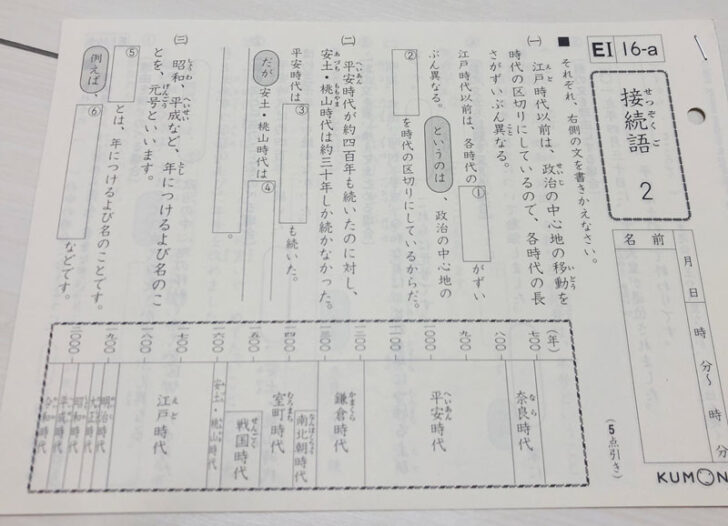 EI 16-a
接続語 2
せつぞくご
月 日
名前
時 分〜 時 分
(5点引き)
KUMON
■ それぞれ、右側の文を書きかえなさい。
(一) 江戸時代以前は、政治の中心地の移動を
時代の区切りにしているので、各時代の長
さがずいぶん異なる。
江戸時代以前は、各時代の①がずい
ぶん異なる。というのは、政治の中心地の
②を時代の区切りにしているからだ。
(二) 平安時代が約四百年も続いたのに対し、
安土・桃山時代は約三十年しか続かなかった。
平安時代は③も続いた。
だが安土・桃山時代は④
。
(三) 昭和、平成など、年につけるよび名のこ
とを、元号といいます。
⑤とは、年につけるよび名のことです。
例えば、⑥などです。
(年)
七〇〇
八〇〇
九〇〇
一〇〇〇
一一〇〇
一二〇〇
一三〇〇
一四〇〇
一五〇〇
一六〇〇
一七〇〇
一八〇〇
一九〇〇
二〇〇〇
奈良時代
平安時代
鎌倉時代
南北朝時代
室町時代
戦国時代
安土・桃山時代
江戸時代
明治時代
大正時代
昭和時代
平成時代
令和時代